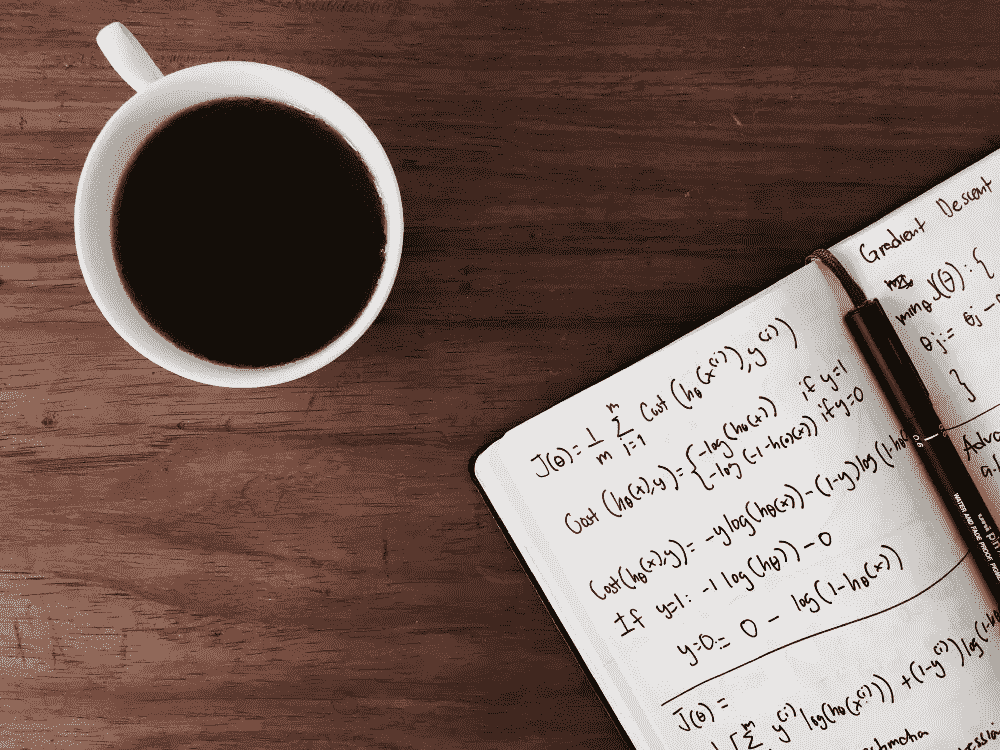 J(θ) = 1/m m Σ i=1 Cost (hθ(x^(i)), y^(i))
Cost (hθ(x), y) = { -log(hθ(x)) if y=1
-log(-1-hθ(x)) if y=0
Cost(hθ(x), y) = -y log(hθ(x)) - (1-y) log(1-hθ
If y=1: -1 log(hθ)) - 0
y=0 := 0 - log(1-hθ(x))
J(θ) =
m Σ y^(i) log(hθ(x^(i))) + (1-y^(i)) log(1-h
Gradient Descent
minθ J(θ) : {
θj := θj -
}
Adva
a.l
0.6
WATER AND FADE PROOF PIG